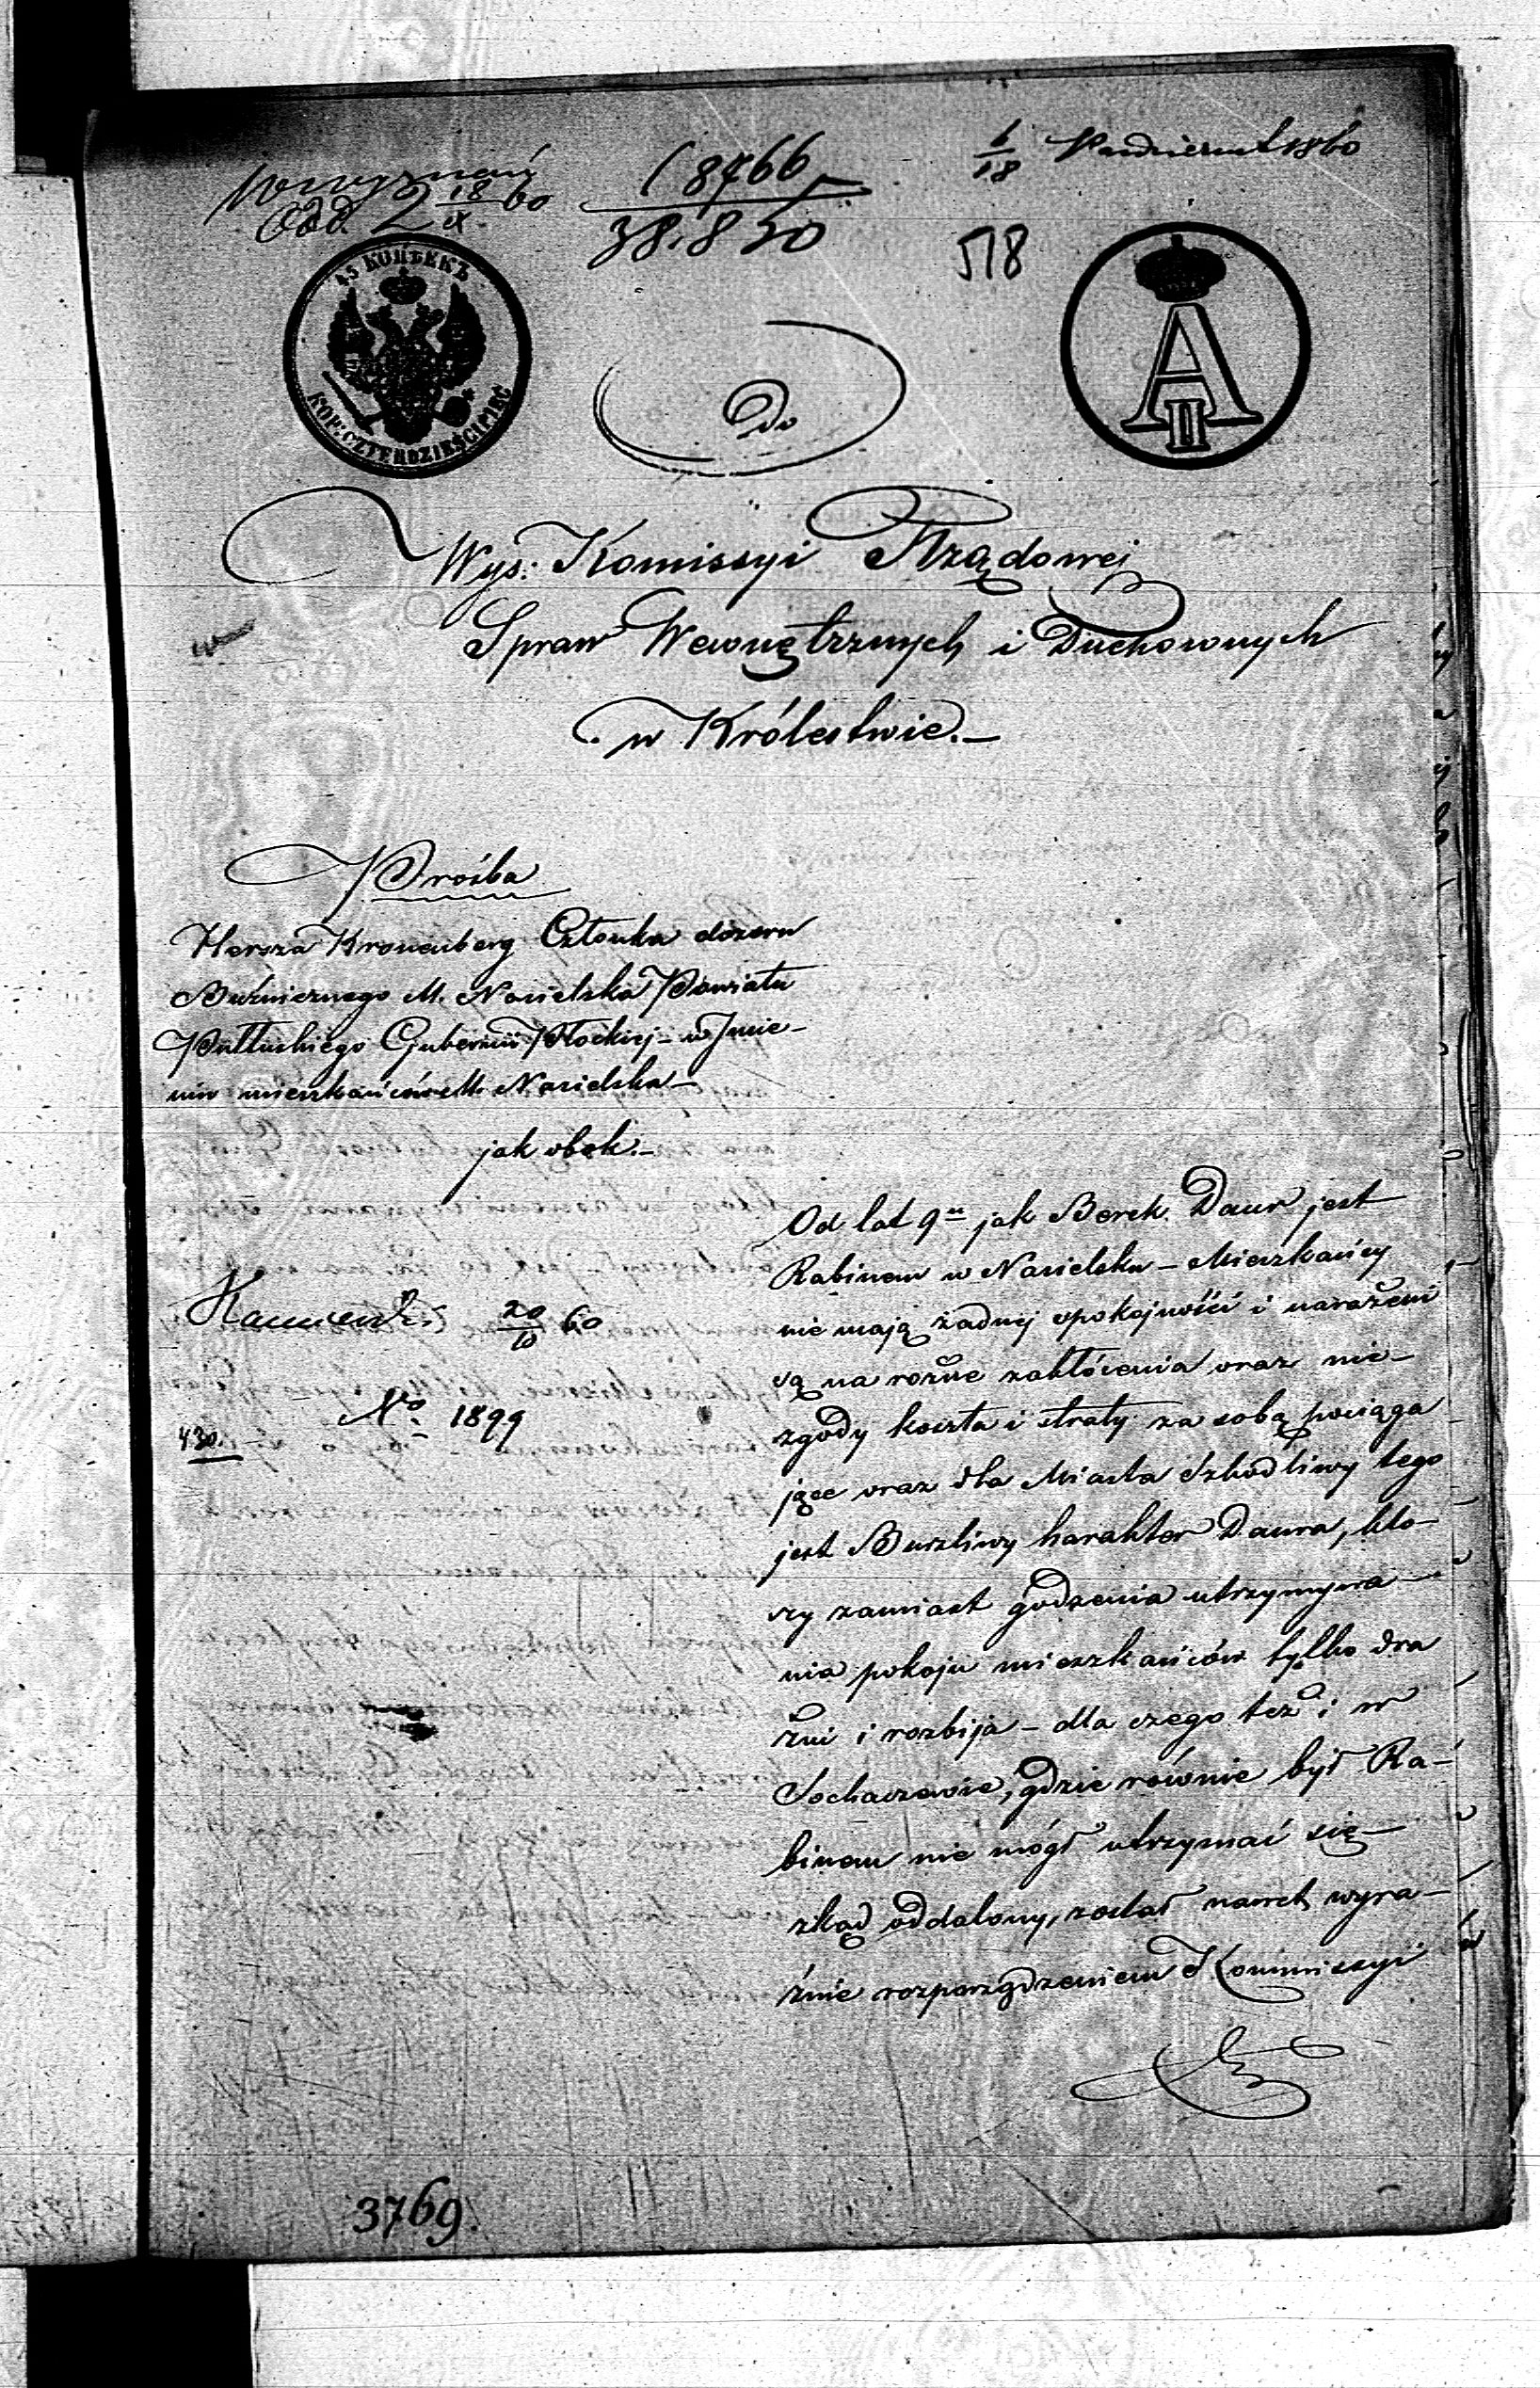 Odd. 2 18/X 60
18766
38.850
6/18 Października 1860
518
45 КОПѢЕКЪ
KOP: CZTERDZIEŚCI PIĘĆ
A II
Do
Wys: Komissyi Rządowej
Spraw Wewnętrznych i Duchownych
w Królestwie.—
Prośba
Hersza Kronenberg Członka dozoru
Bużnicznego M. Nasielska Powiatu
Pułtuskiego Gubernii Płockiej – w Imie-
niu mieszkańców M. Nasielska –
jak obok.–
Od lat 9u jak Berek Daur jest
Rabinem w Nasielsku – Mieszkańcy
nie mają żadnej spokojności i narażeni
są na rożne zakłócenia oraz nie-
zgody koszta i straty za sobą pociąga
jące oraz dla Miasta Szkodliwy tego
jest Burzliwy harakter Daura, któ-
ry zamiast godzenia utrzymywa-
nia pokoju mieszkańców tylko dra
żni i rozbija – dla czego też i w
Sochaczewie, gdzie równie był Ra-
binem nie mógł utrzymać się –
zkąd oddalony, został nawet wyra-
źnie rozporządzeniem Kommissyi
20/10 60
No 1899
430.
3769.